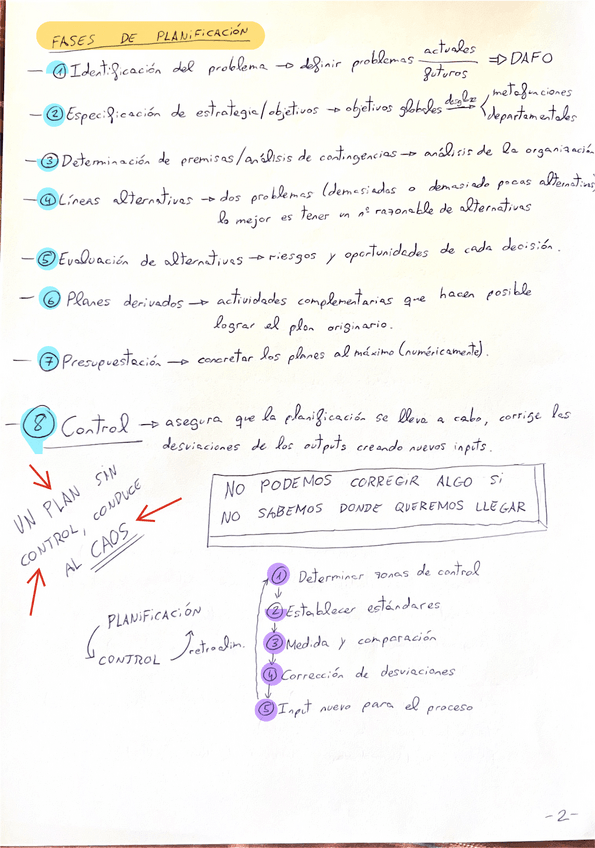 FASES DE PLANIFICACIÓN
— ① Identificación del problema → definir problemas actuales / futuros ⇒ DAFO
— ② Especificación de estrategia/objetivos → objetivos globales → metafunciones
departamentales
— ③ Determinación de premisas/análisis de contingencias → análisis de la organización
— ④ Líneas alternativas → dos problemas (demasiadas o demasiado pocas alternativas)
lo mejor es tener un nº razonable de alternativas
— ⑤ Evaluación de alternativas → riesgos y oportunidades de cada decisión.
— ⑥ Planes derivados → actividades complementarias que hacen posible
lograr el plan originario.
— ⑦ Presupuestación → concretar los planes al máximo (numéricamente).
— ⑧ Control → asegura que la planificación se lleva a cabo, corrige las
desviaciones de los outputs creando nuevos inputs.
UN PLAN SIN
CONTROL, CONDUCE
AL CAOS
NO PODEMOS CORREGIR ALGO SI
NO SABEMOS DONDE QUEREMOS LLEGAR
PLANIFICACIÓN
CONTROL
retroalim.
① Determinar zonas de control
② Establecer estándares
③ Medida y comparación
④ Corrección de desviaciones
⑤ Input nuevo para el proceso
-2-